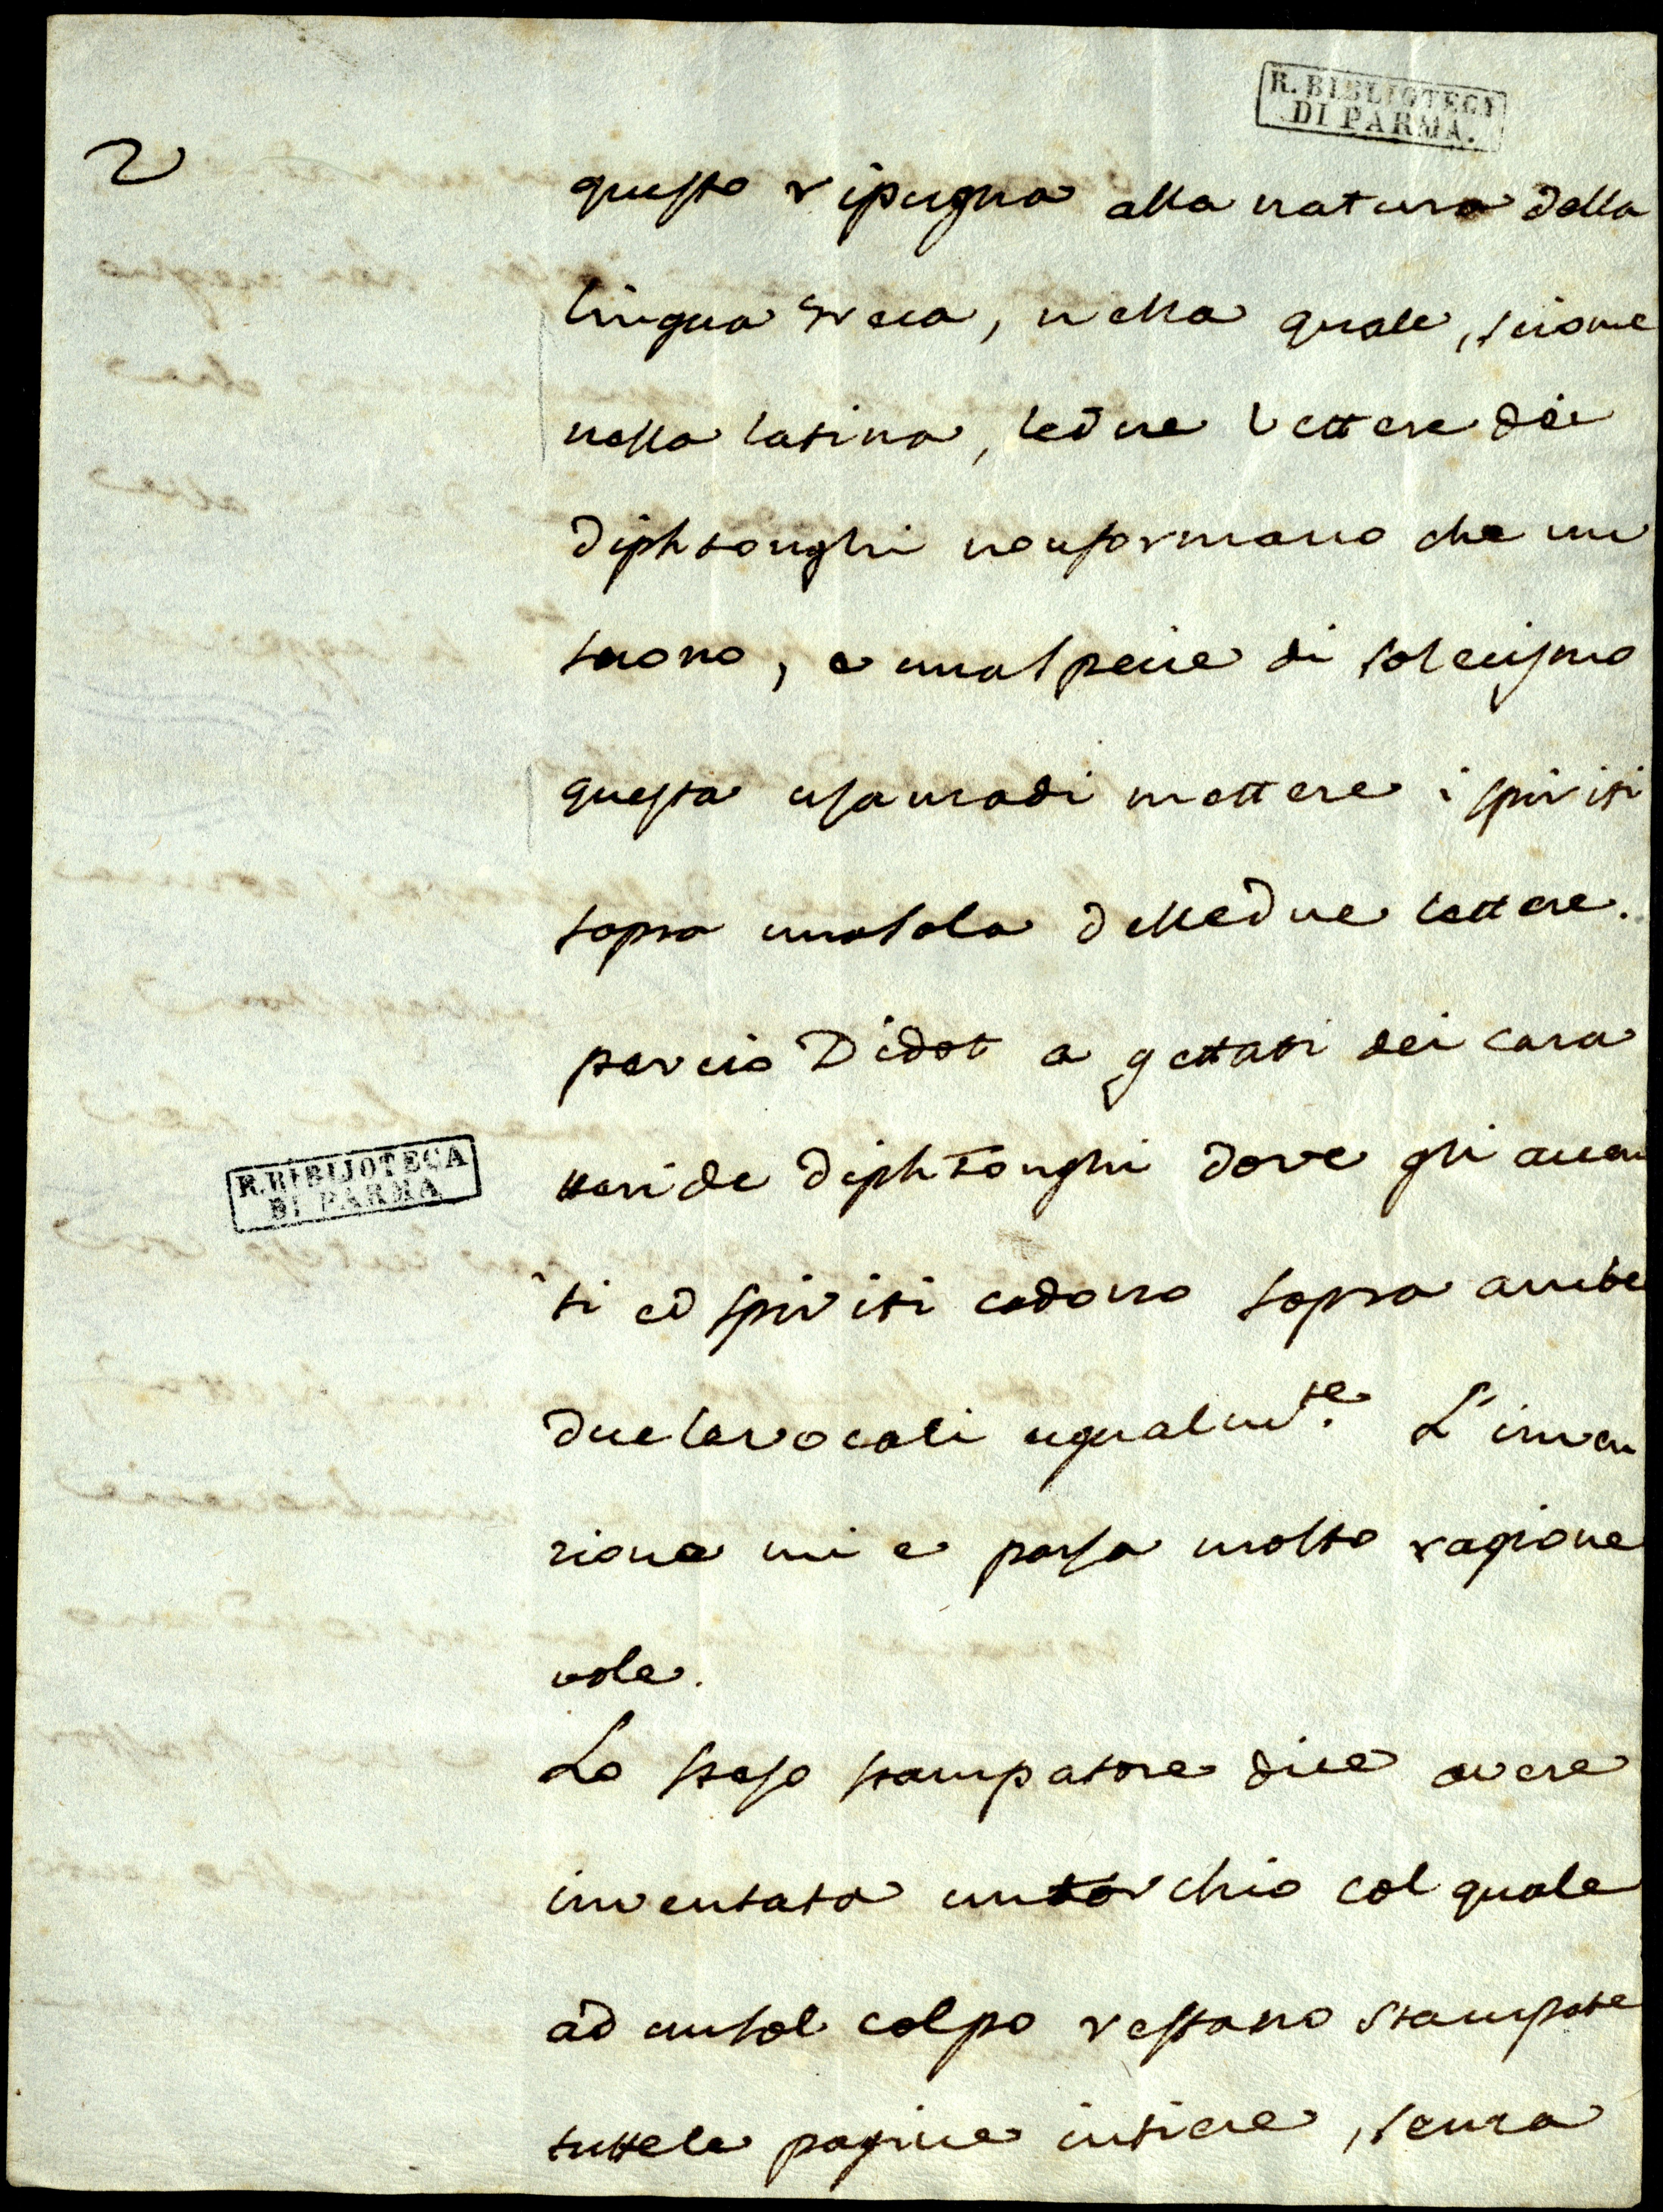 R. BIBLIOTECA
DI PARMA.
2
questo ripugna alla natura della
lingua greca, nella quale, siccome
nella latina, le due lettere dei
diphtonghi non formano che un
suono, e una specie di solecismo
questa usanza di mettere i spiriti
sopra una sola delle due lettere.
percio Didot a gettati dei cara
tteri de diphtonghi dove gli accen
ti ed spiriti cadono sopra ambe
due le vocali egualmte. L'inven
zione mi e parsa molto ragione
vole.
Lo stesso stampatore dice avere
inventato un torchio col quale
ad un sol colpo restano stampate
tutte le pagine intiere, senza
R. BIBLIOTECA
DI PARMA